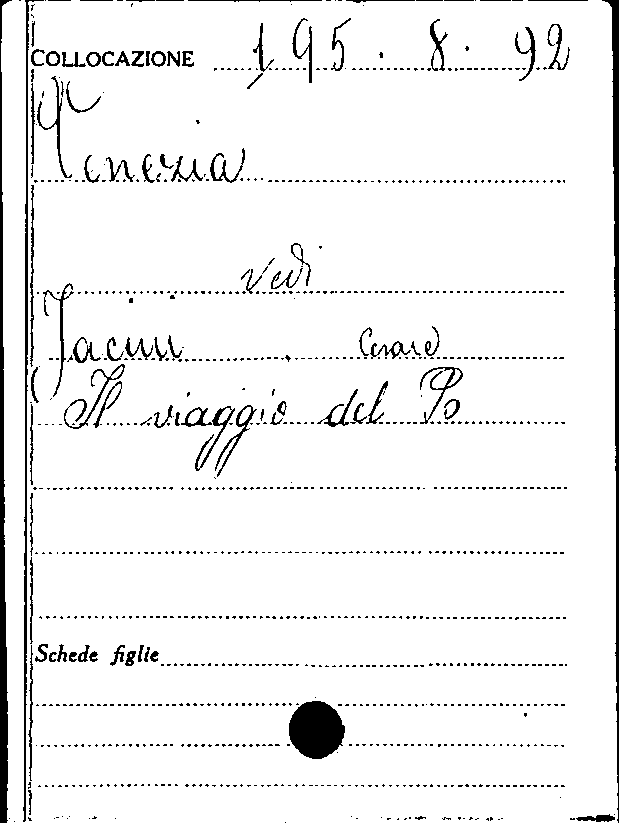 COLLOCAZIONE 195.8.92
Venezia
vedi
Jacini Cesare
Il viaggio del Po
Schede figlie